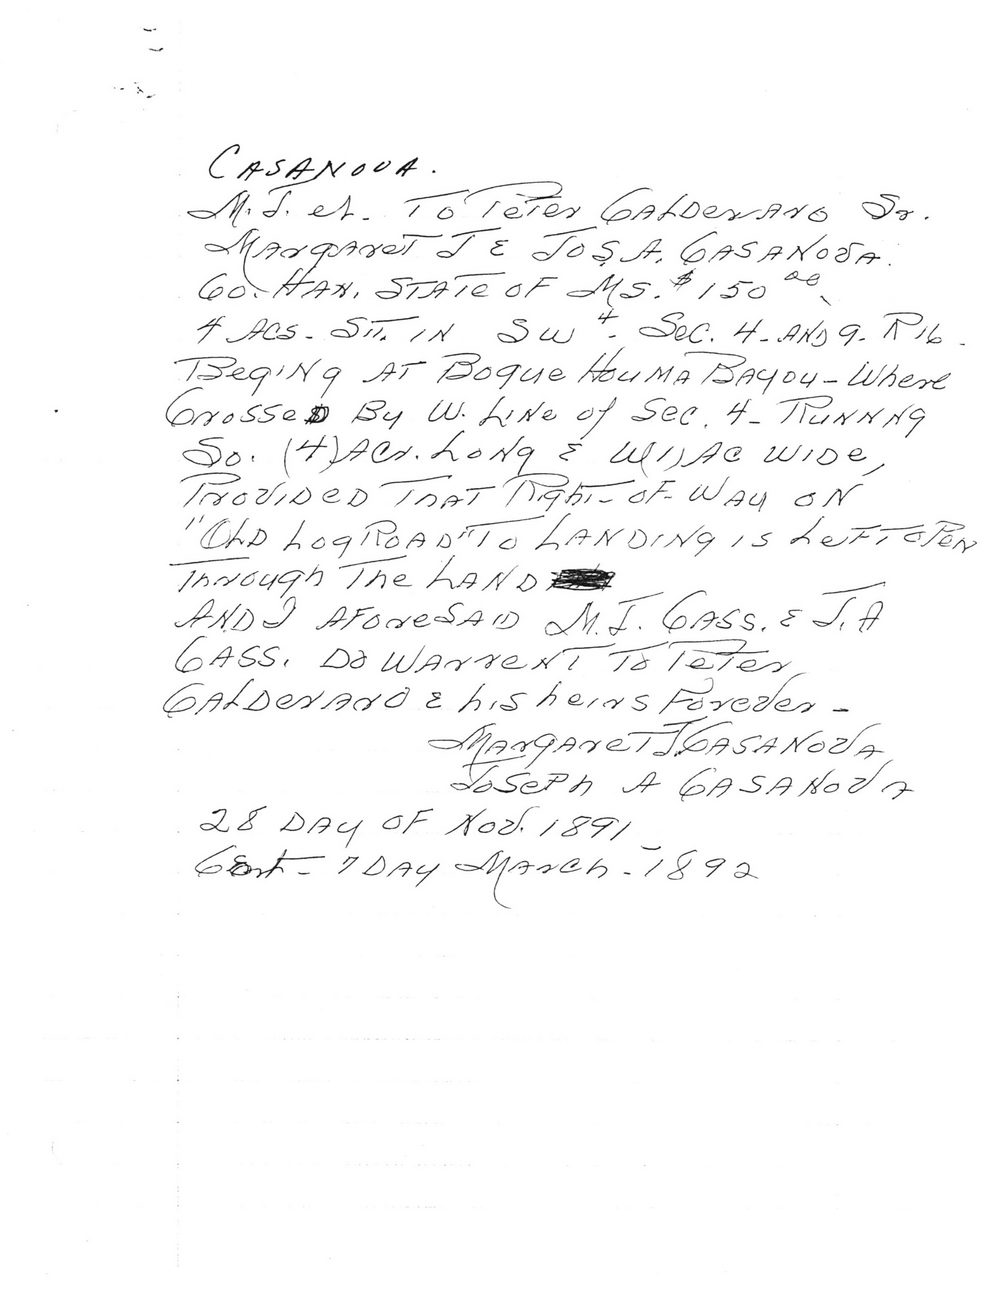 CASANOVA.
M.J. et. To Peter CALDerARO Sr.
MArgAreT J & JOS. A. CASANOVA.
Co. HAN. STATE OF MS. $150 00
4 ACS. SIT. IN SW 4. Sec. 4. AND 9. R16.
BegINg AT BOgue HOUMA BAYOU - Where
CrosseD By W. LINe of Sec. 4 - RUNNNg
So. (4) ACr. LONg & W(1) AC WIDe,
ProvIDeD THAT RIghT-OF-WAY ON
"OLD LOg ROAD" TO LANDINg IS LeFT OPeN
Through The LAND
AND I AForeSAID M.J. CASS. & J.A
CASS. DO WArreNT To PeTer
CALDerArO & his heirs Forever -
MArgAreT J. CASANOVA
JOSePh A CASANOVA
28 DAY OF NOV. 1891
7 DAY MArch - 1892